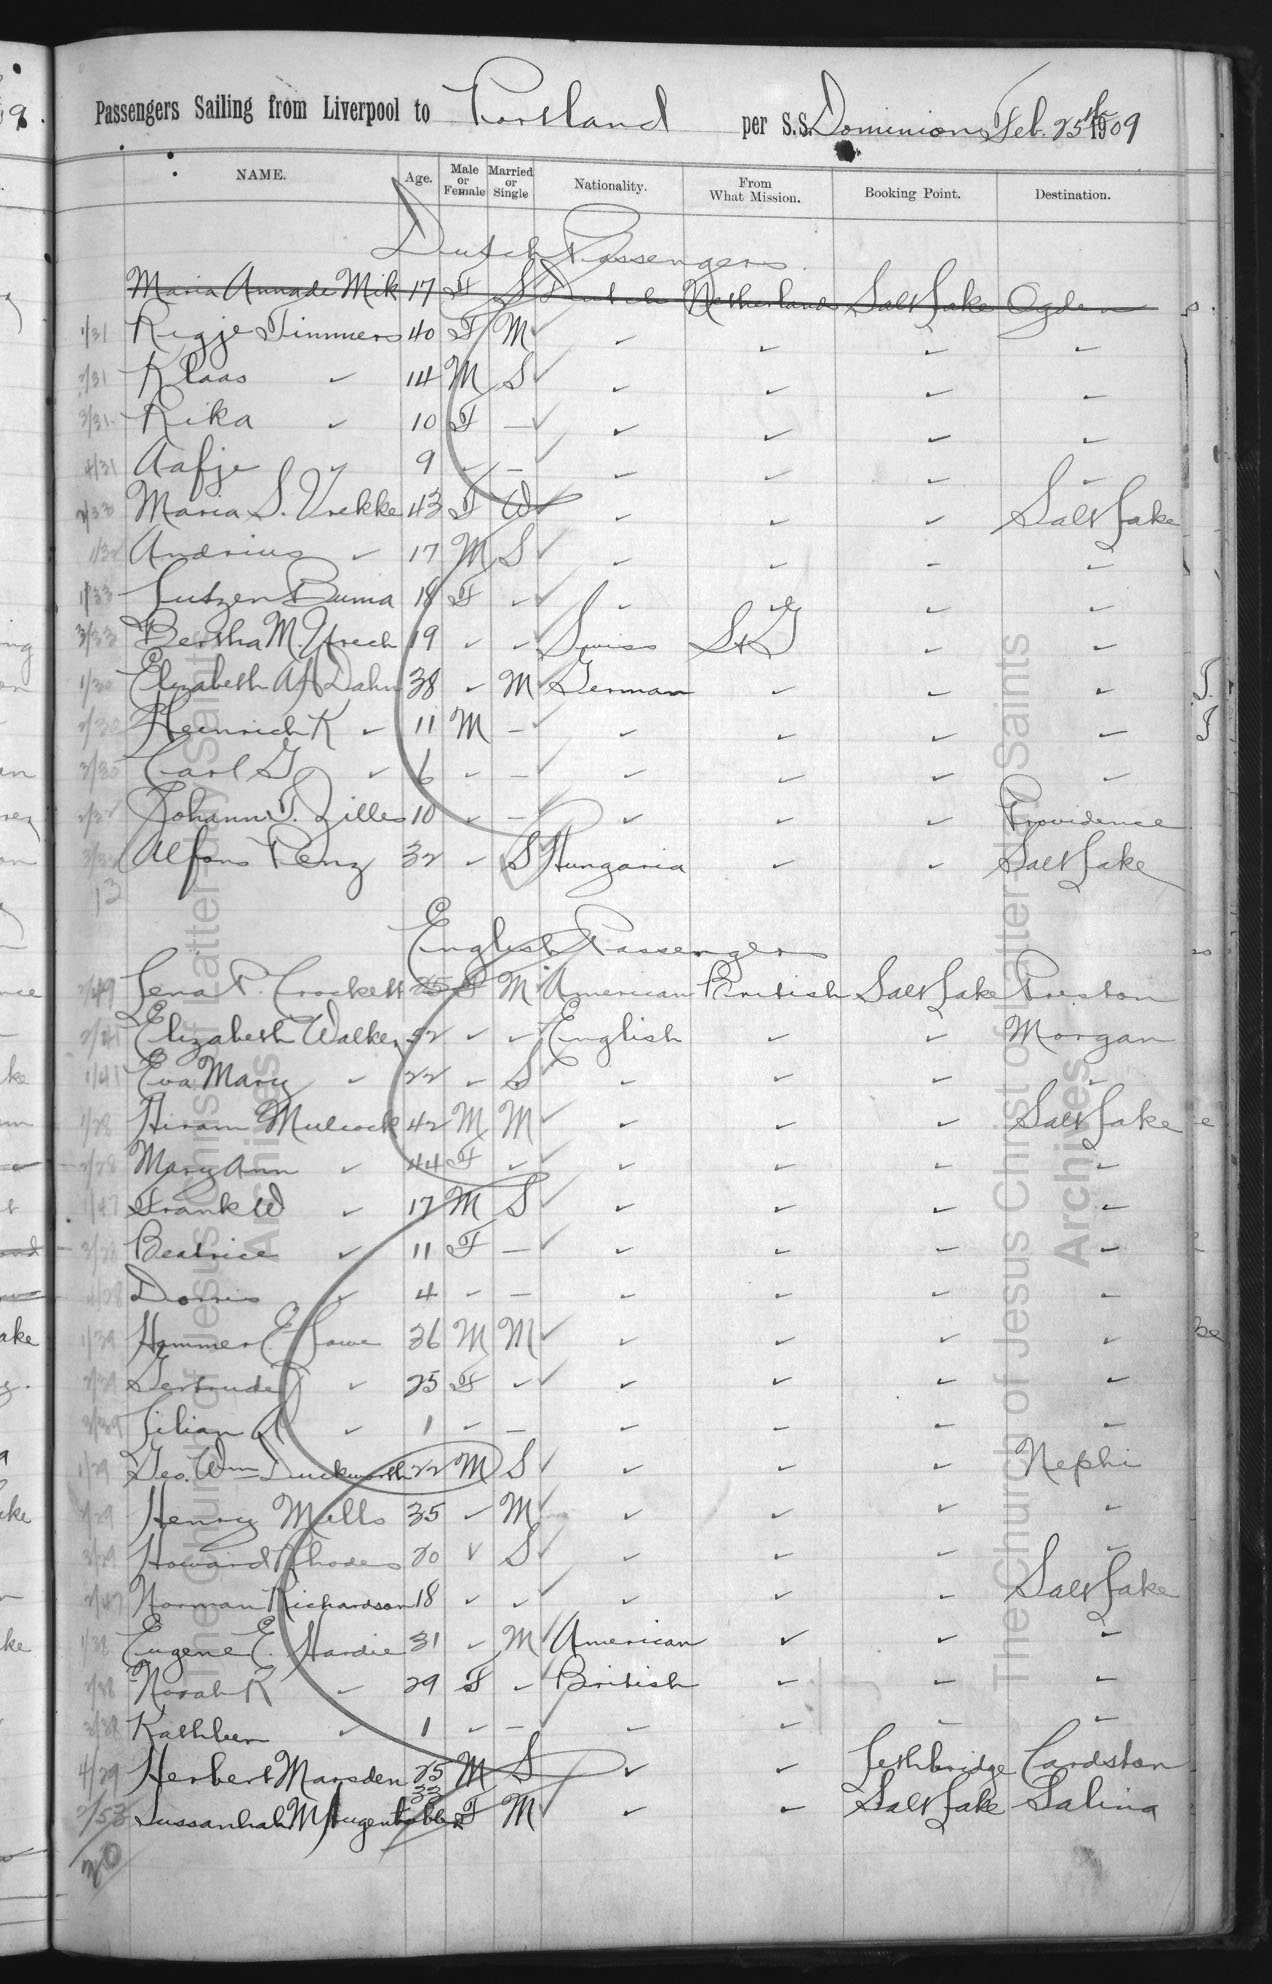 Passengers Sailing from Liverpool to Portland per S.S. Dominion Feb. 25th 1909
NAME. Age. Male or Female Married or Single Nationality. From What Mission. Booking Point. Destination.
Dutch Passengers
Maria Anna de Mik 17 F S Dutch Netherlands Salt Lake Ogden
1/31 Rigje Timmers 40 F M ✓ ✓ ✓ ✓
2/31 Klaas ✓ 14 M S ✓ ✓ ✓ ✓
3/31 Rika ✓ 10 F — ✓ ✓ ✓ ✓
4/31 Aafje ✓ 9 ✓ — ✓ ✓ ✓ ✓
2/33 Maria S. Vrekke 43 F W ✓ ✓ ✓ Salt Lake
1/32 Andrius ✓ 17 M S ✓ ✓ ✓ ✓
1/33 Lutzen Buma 18 F ✓ ✓ ✓ ✓ ✓
3/33 Bertha M. 19 ✓ ✓ Swiss S & G ✓ ✓
1/30 Elizabeth A. Dahn 38 ✓ M German ✓ ✓ ✓
2/30 Heinrich K ✓ 11 M — ✓ ✓ ✓ ✓
3/30 Carl G ✓ 6 ✓ — ✓ ✓ ✓ ✓
2/32 Johann T. Zilles 10 ✓ — ✓ ✓ ✓ Providence
3/32 Alfons Penz 32 ✓ S Hungaria ✓ ✓ Salt Lake
13
English Passengers
2/49 Lena P. Crockett 25 F M American British Salt Lake Preston
2/41 Elizabeth Walker 52 ✓ ✓ English ✓ ✓ Morgan
1/41 Eva Mary ✓ 22 ✓ S ✓ ✓ ✓ ✓
1/28 Hiram Mulcock 42 M M ✓ ✓ ✓ Salt Lake
2/28 Mary Ann ✓ 44 F ✓ ✓ ✓ ✓ ✓
1/47 Frank W ✓ 17 M S ✓ ✓ ✓ ✓
3/28 Beatrice ✓ 11 F — ✓ ✓ ✓ ✓
4/28 Dorris ✓ 4 ✓ — ✓ ✓ ✓ ✓
1/39 Hammer E. Lowe 36 M M ✓ ✓ ✓ ✓
2/39 Gertrude ✓ 25 F ✓ ✓ ✓ ✓ ✓
3/39 Lilian A ✓ 1 ✓ — ✓ ✓ ✓ ✓
1/29 Geo. Wm Duckworth 22 M S ✓ ✓ ✓ Nephi
2/29 Henry Mills 35 ✓ M ✓ ✓ ✓ ✓
3/29 Howard Rhodes 20 ✓ S ✓ ✓ ✓ ✓
2/47 Norman Richardson 18 ✓ ✓ ✓ ✓ ✓ Salt Lake
1/38 Eugene E. Hardie 31 ✓ M American ✓ ✓ ✓
2/38 Norah K ✓ 29 F ✓ British ✓ ✓ ✓
3/38 Kathleen ✓ 1 ✓ — ✓ ✓ ✓ ✓
4/29 Herbert Marsden 25 M S ✓ ✓ Lethbridge Cardston
2/53 Sussanhah M Hugentobbler 33 F M ✓ ✓ Salt Lake Salina
20
The Church of Jesus Christ of Latter-day Saints
Archives
The Church of Jesus Christ of Latter-day Saints
Archives